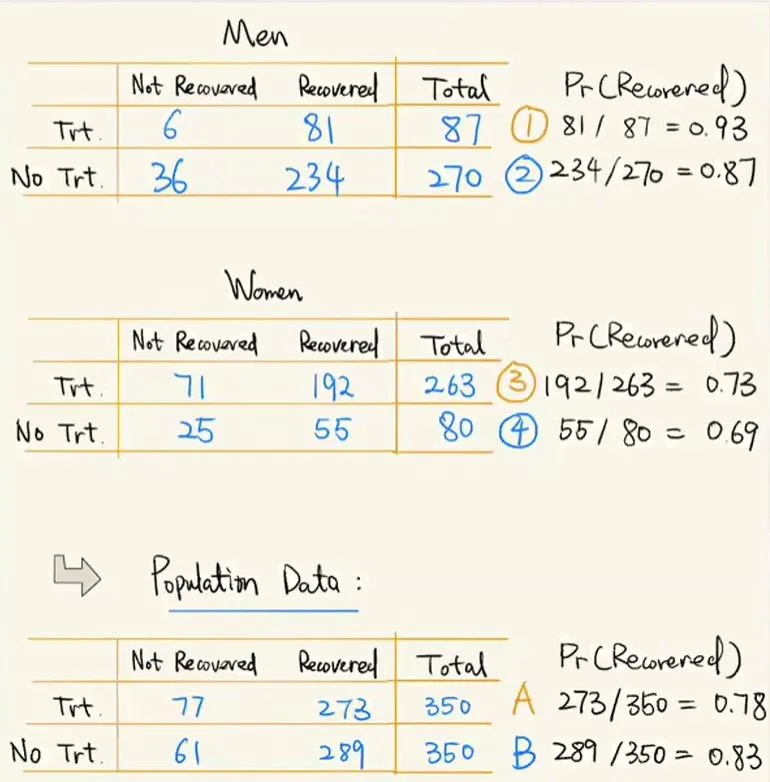 Men
Not Recovered Recovered Total Pr(Recovered)
Trt. 6 81 87 ① 81 / 87 = 0.93
No Trt. 36 234 270 ② 234/270 = 0.87
Women
Not Recovered Recovered Total Pr(Recovered)
Trt. 71 192 263 ③ 192/263 = 0.73
No Trt. 25 55 80 ④ 55 / 80 = 0.69
Population Data :
Not Recovered Recovered Total Pr(Recovered)
Trt. 77 273 350 A 273/350 = 0.78
No Trt. 61 289 350 B 289 /350 = 0.83